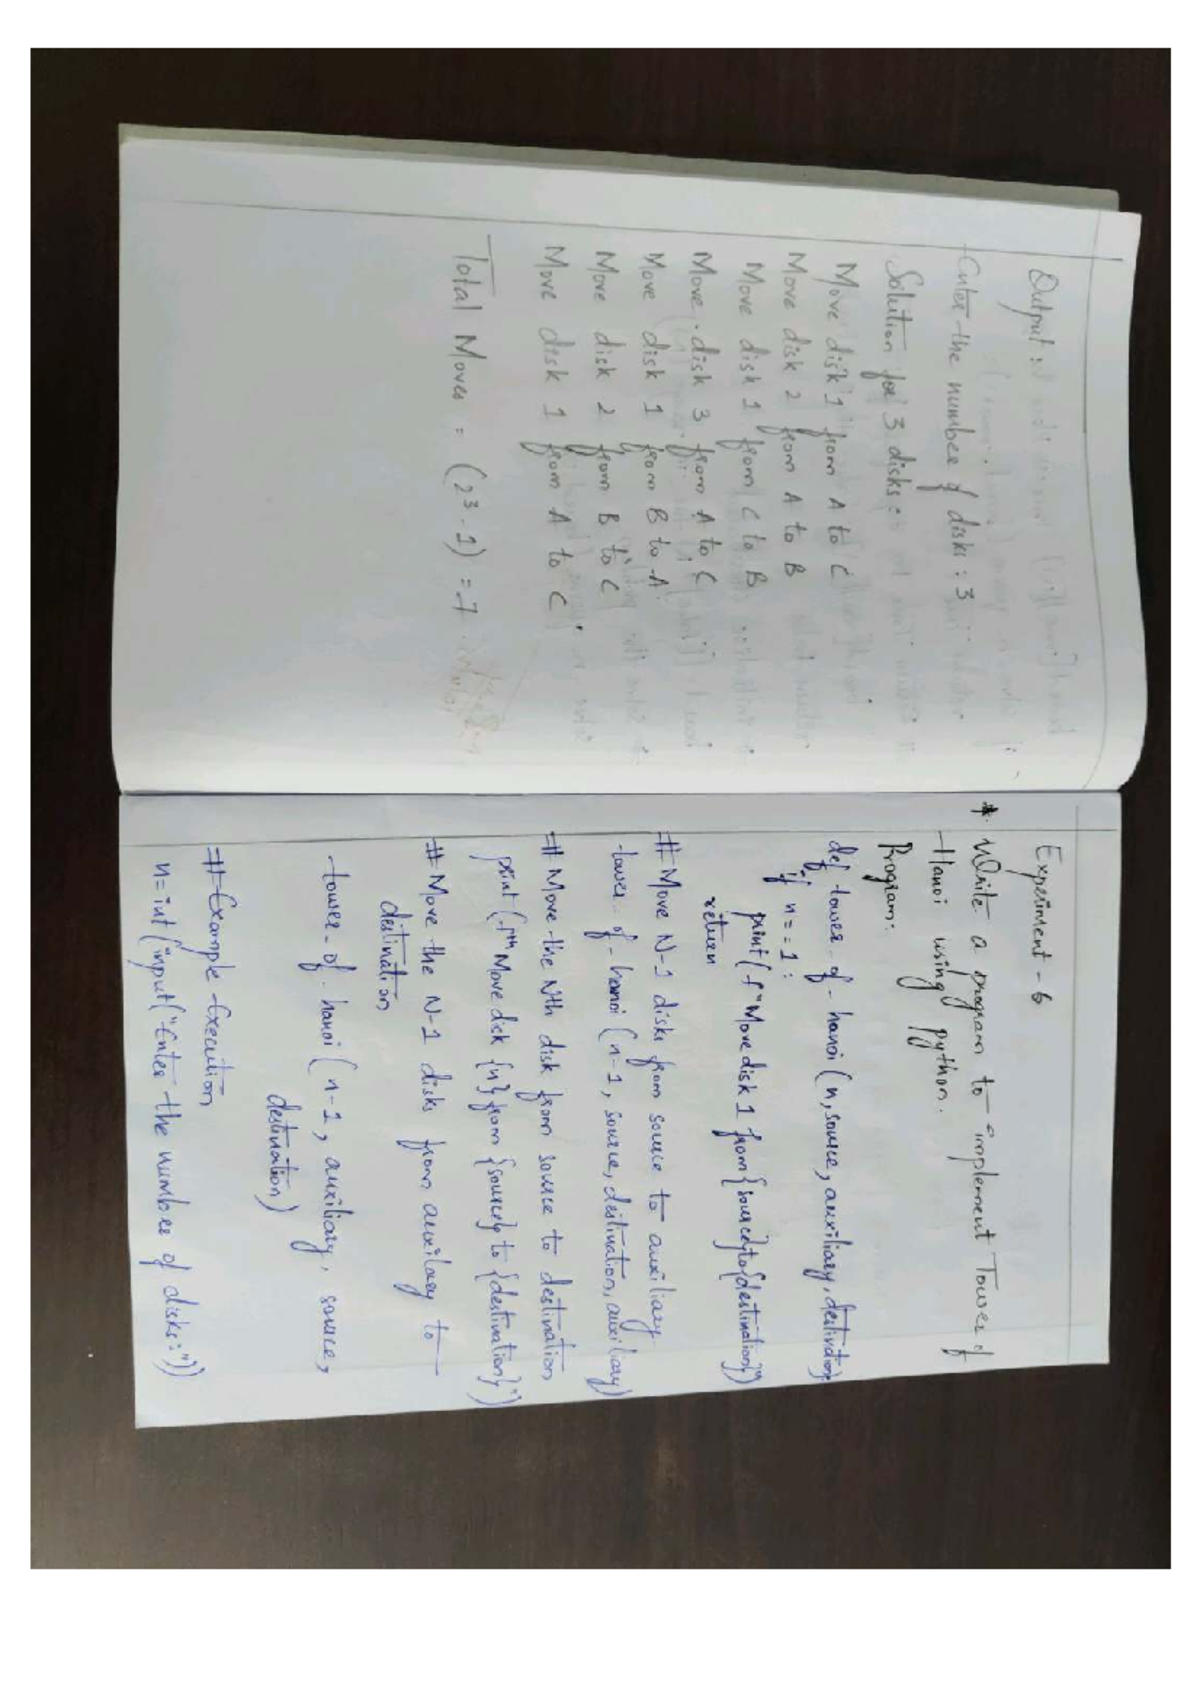 Output :
Enter the number of disks : 3
Solution for 3 disks :
Move disk 1 from A to C
Move disk 2 from A to B
Move disk 1 from C to B
Move disk 3 from A to C
Move disk 1 from B to A
Move disk 2 from B to C
Move disk 1 from A to C
Total Moves = (2³-1) = 7
Experiment - 6
* Write a program to implement Tower of
Hanoi using python.
Program:
def tower-of-hanoi (n, source, auxiliary, destination):
if n == 1:
print (f"Move disk 1 from {source} to {destination}")
return
# Move N-1 disks from source to auxiliary
tower-of-hanoi (n-1, source, destination, auxiliary)
# Move the Nth disk from source to destination
print (f"Move disk {n} from {source} to {destination}")
# Move the N-1 disks from auxilary to
destination
tower-of-hanoi (n-1, auxiliary, source,
destination)
# Example Execution
n = int (input ("Enter the number of disks:"))